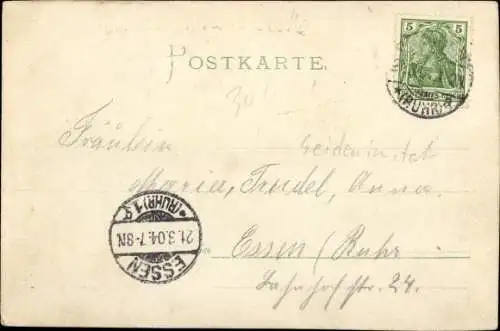 POSTKARTE.
5 5
(RUHR)
Fräulein
Maria, Trudel, Anna.
Essen (Ruhr
Bahnhofstr. 24.
ESSEN
21.3.04.7-8N.
*(RUHR)1q.